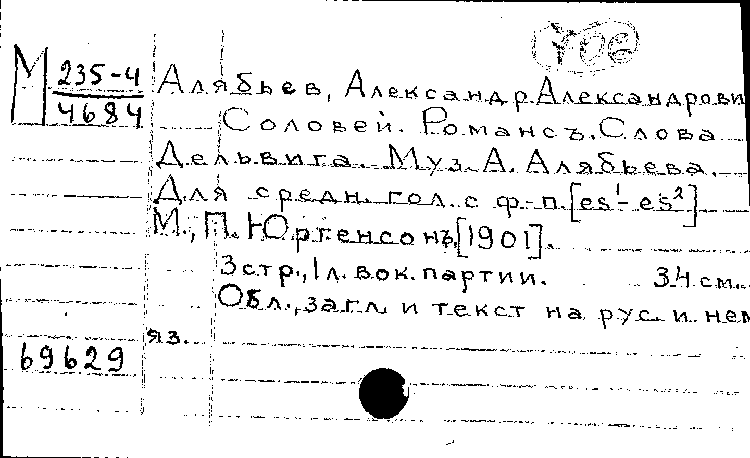 М 235-4
4684
Алябьев, Александр Александрови
Соловей. Романсъ. Слова
Дельвига. Муз. А. Алябьева.
Для средн. гол. с ф-п. [es¹-es²]
М., П. Юргенсонъ, [1901].
3 стр., 1 л. вок. партии. 34 см.
Обл., загл. и текст на рус. и нем
яз.
69629